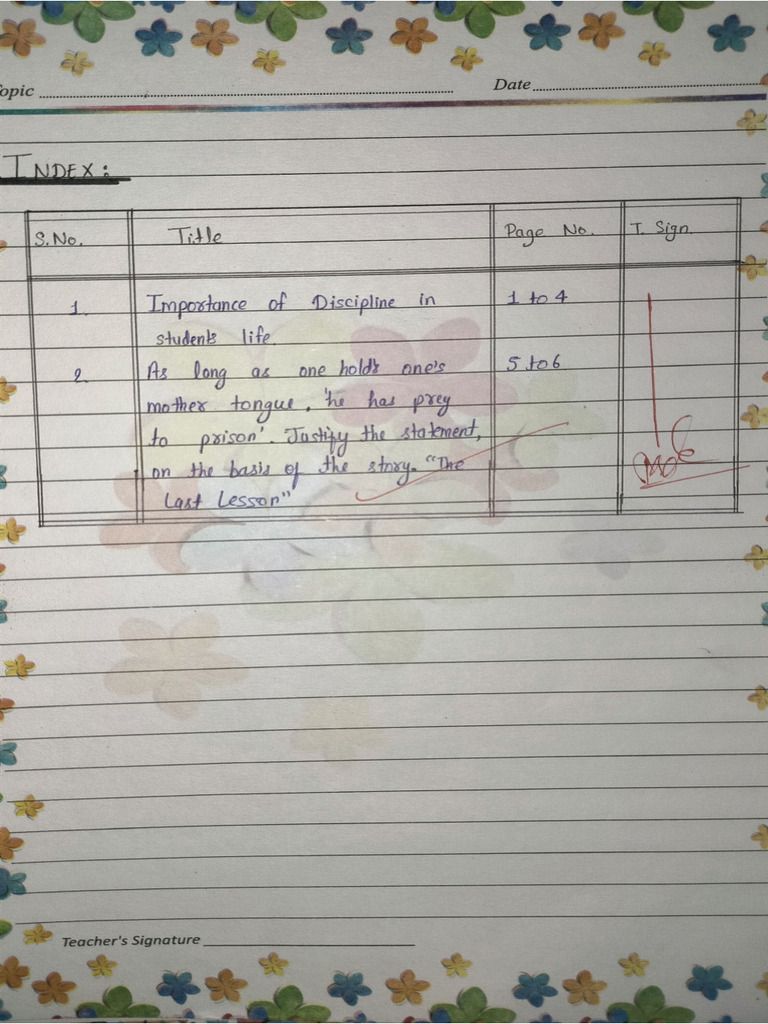 Topic
Date
INDEX:
S.No. Title Page No. T. Sign.
1. Importance of Discipline in 1 to 4
students life.
2. As long as one holds one's 5 to 6
mother tongue, 'he has prey
to prison'. Justify the statement,
on the basis of the story. "The
Last Lesson"
Teacher's Signature